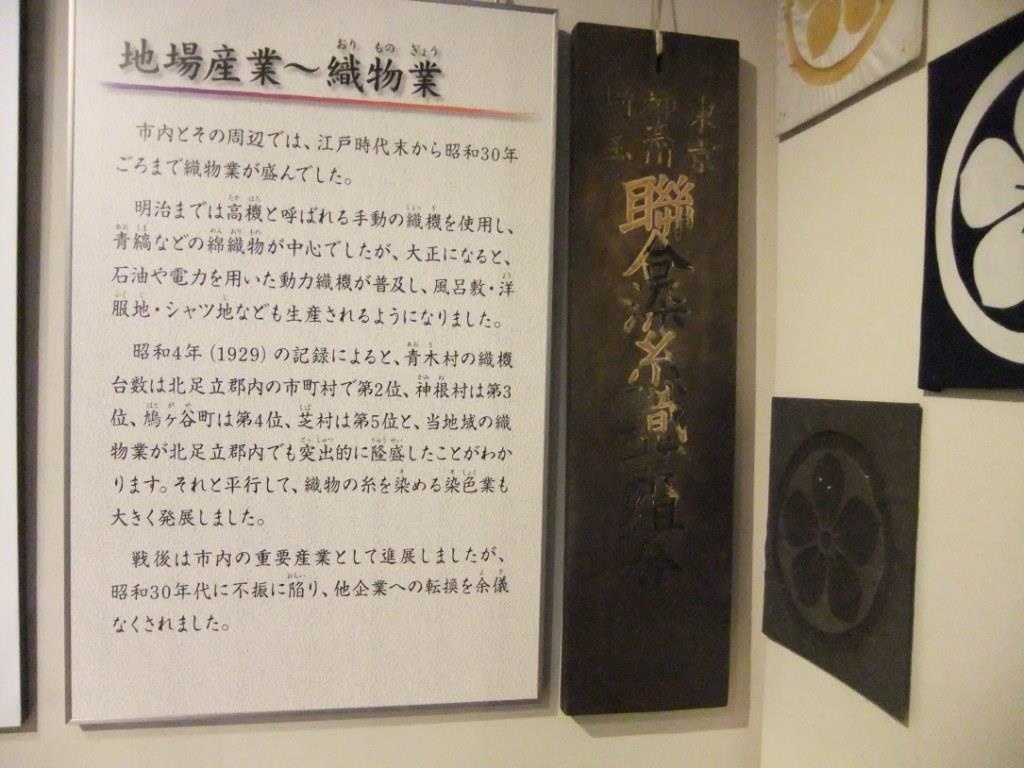 地場産業～織物業
おり もの ぎょう
市内とその周辺では、江戸時代末から昭和30年
ごろまで織物業が盛んでした。
明治までは高機と呼ばれる手動の織機を使用し、
青縞などの綿織物が中心でしたが、大正になると、
石油や電力を用いた動力織機が普及し、風呂敷・洋
服地・シャツ地なども生産されるようになりました。
昭和4年(1929)の記録によると、青木村の織機
台数は北足立郡内の市町村で第2位、神根村は第3
位、鳩ヶ谷町は第4位、芝村は第5位と、当地域の織
物業が北足立郡内でも突出的に隆盛したことがわか
ります。それと平行して、織物の糸を染める染色業も
大きく発展しました。
戦後は市内の重要産業として進展しましたが、
昭和30年代に不振に陥り、他企業への転換を余儀
なくされました。
東京
神奈川
埼玉
聯合染糸織布組合